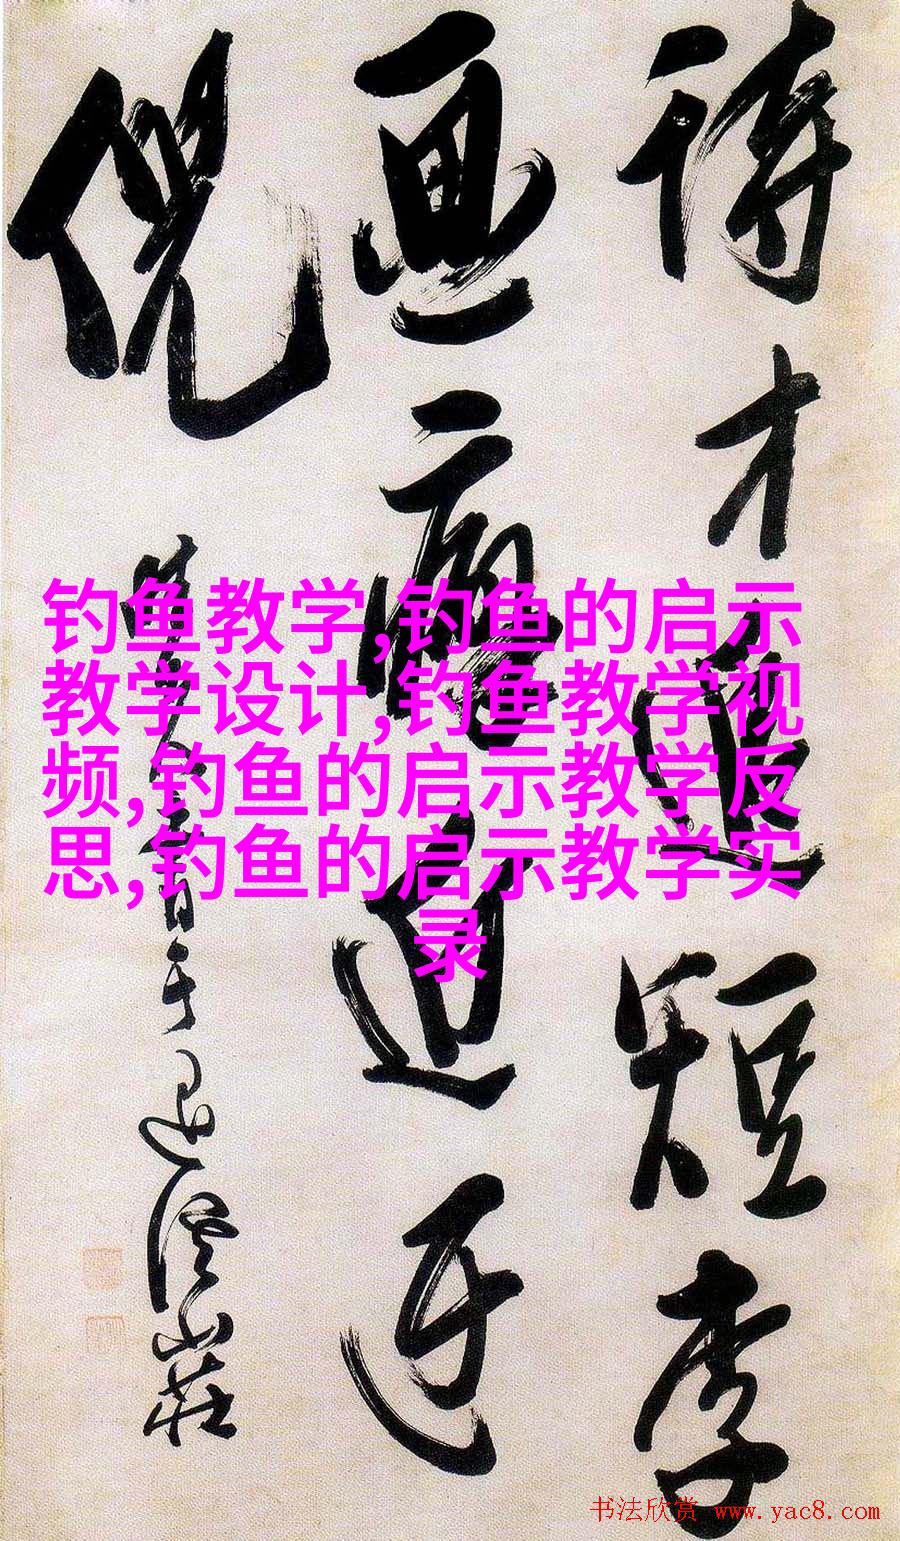 詩才追短李
画迂
倪
山莊
钓鱼教学,钓鱼的启示
教学设计,钓鱼教学视
频,钓鱼的启示教学反
思,钓鱼的启示教学实
录
书法欣赏 www.yac8.com